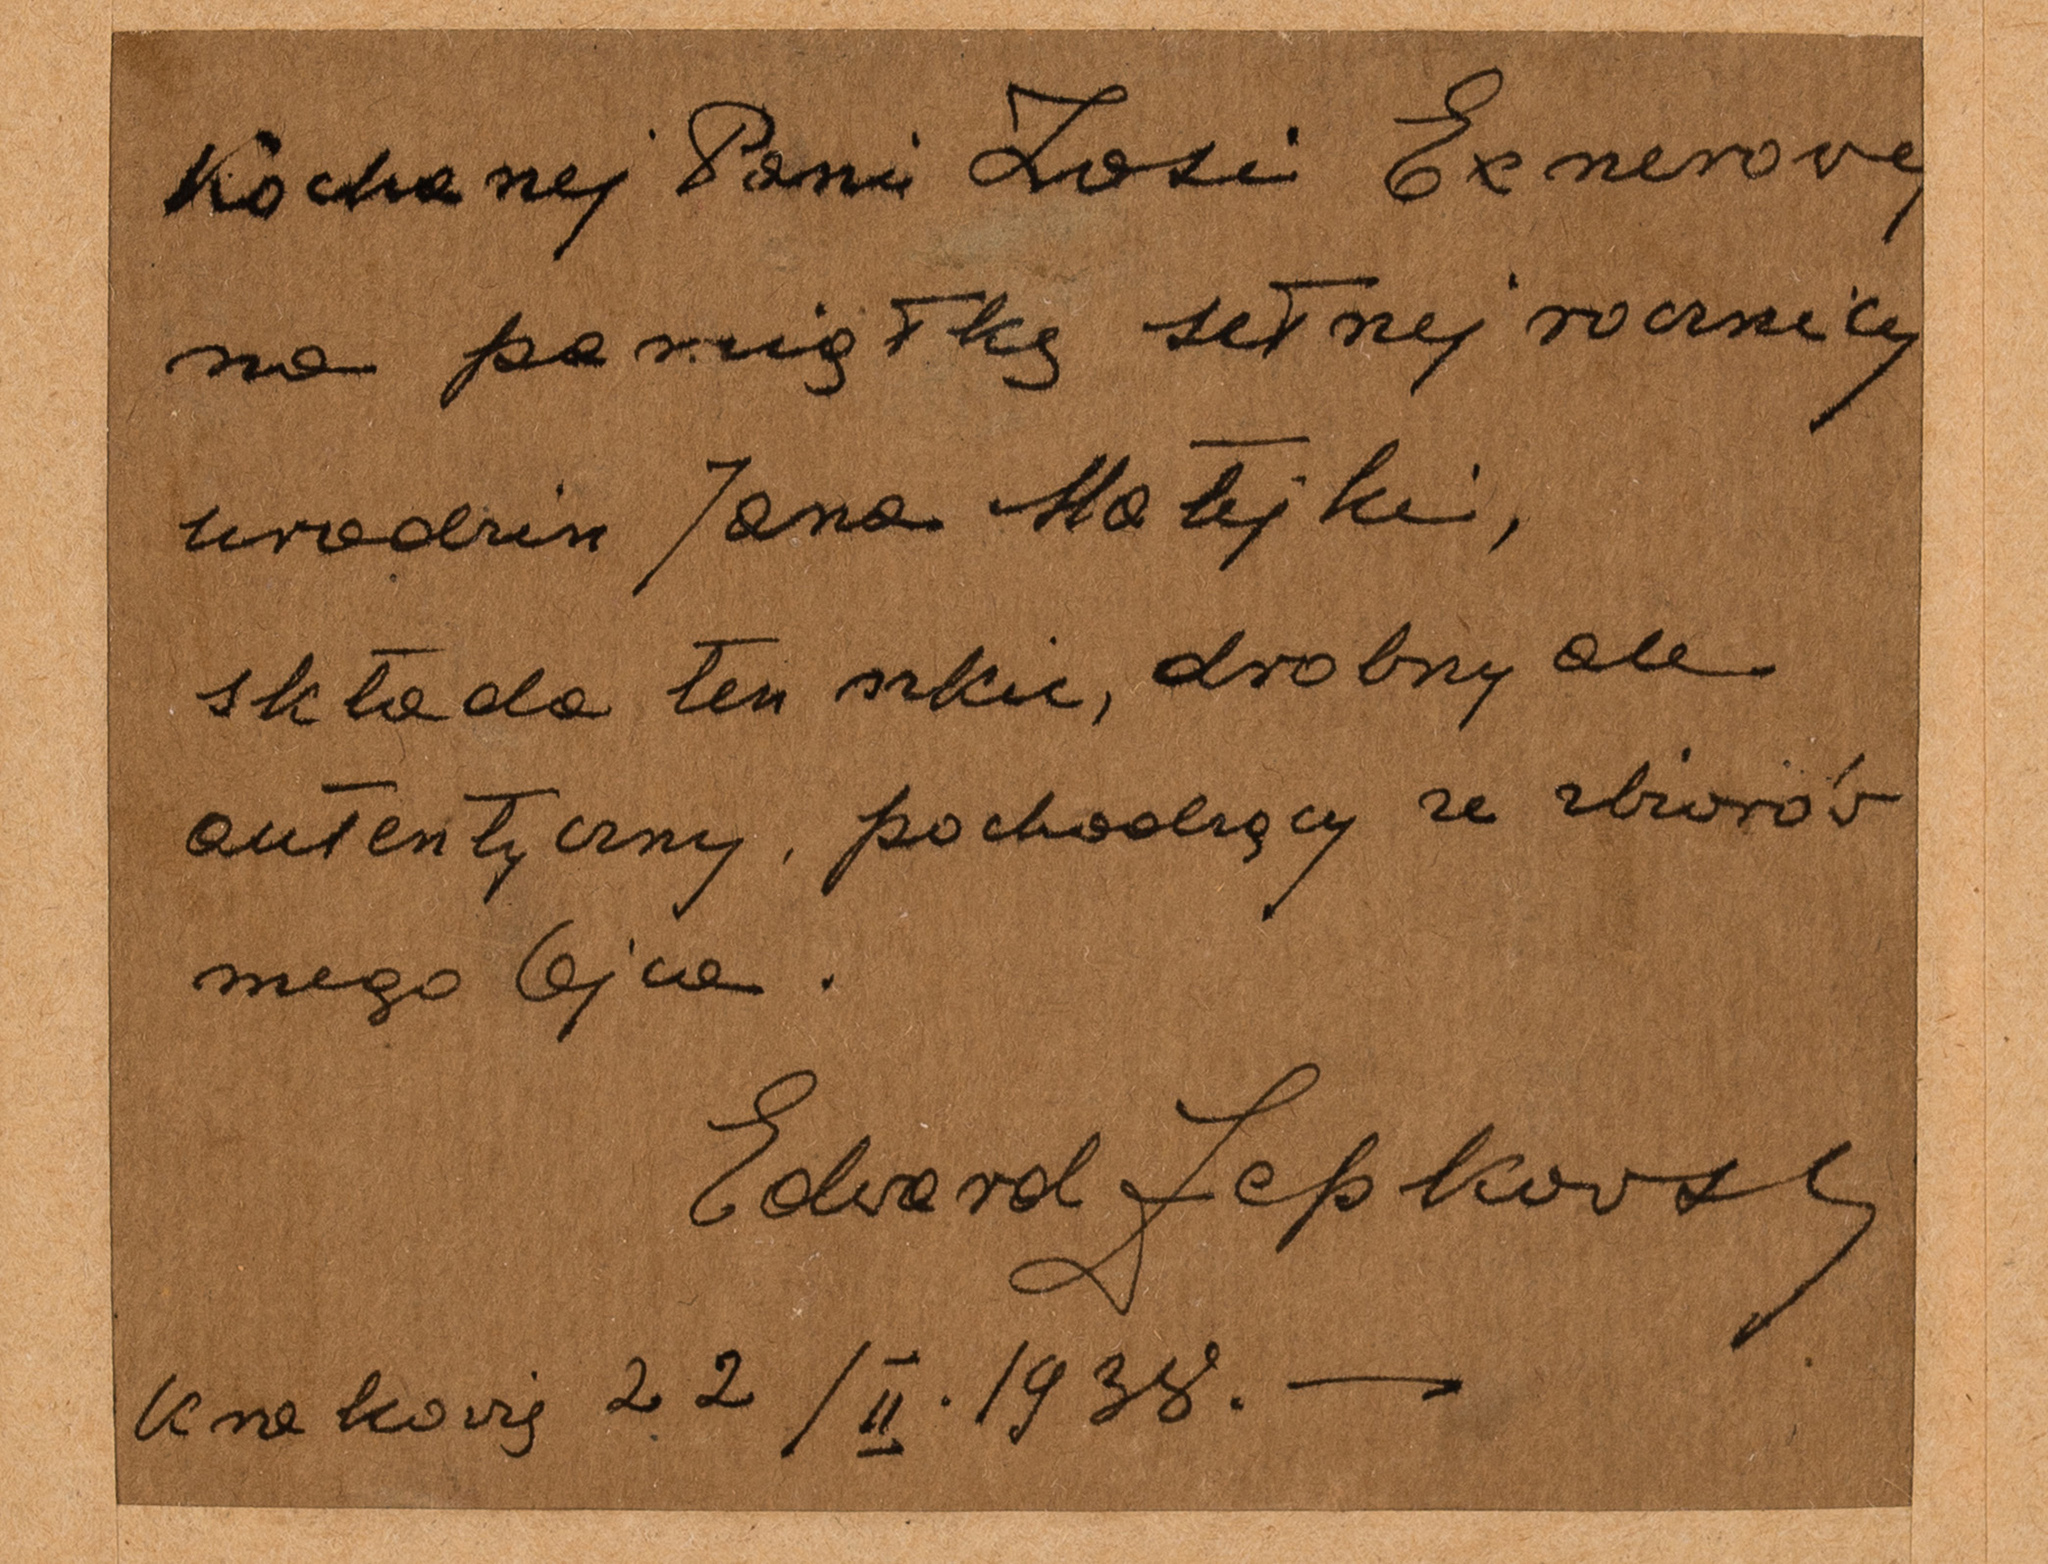 Kochanej Pani Zosi Exnerovej
na pamiątkę setnej rocznicy
urodzin Jana Matejki,
składa ten szkic, drobny ale
autentyczny, pochodzący ze zbiorów
mego Ojca.
Edward Lepkowski
Kraków 22/II.1938.—